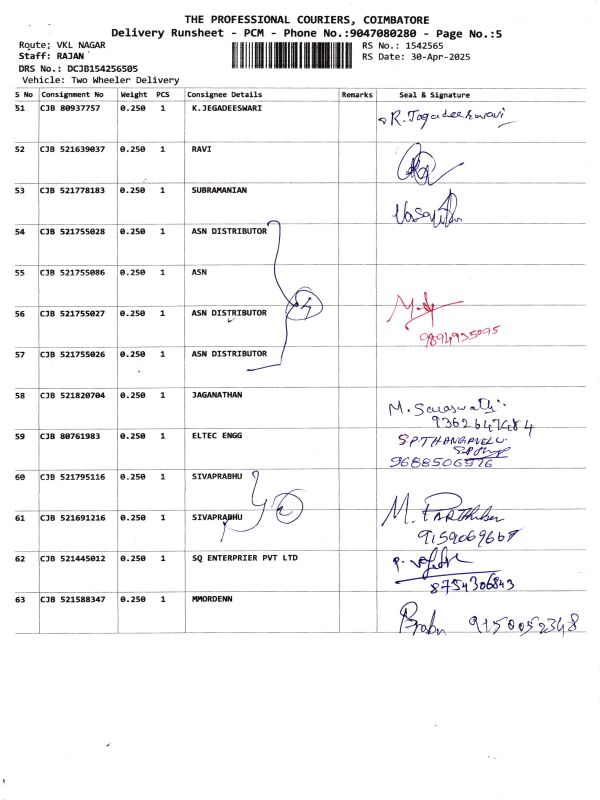 THE PROFESSIONAL COURIERS, COIMBATORE
Delivery Runsheet - PCM - Phone No.:9047080280 - Page No.:5
Route: VKL NAGAR RS No.: 1542565
Staff: RAJAN RS Date: 30-Apr-2025
DRS No.: DCJB154256505
Vehicle: Two Wheeler Delivery
S No Consignment No Weight PCS Consignee Details Remarks Seal & Signature
51 CJB 80937757 0.250 1 K.JEGADEESWARI R. Jagadeeswari
52 CJB 521639037 0.250 1 RAVI
53 CJB 521778183 0.250 1 SUBRAMANIAN
54 CJB 521755028 0.250 1 ASN DISTRIBUTOR
55 CJB 521755086 0.250 1 ASN
56 CJB 521755027 0.250 1 ASN DISTRIBUTOR 4
9894935095
57 CJB 521755026 0.250 1 ASN DISTRIBUTOR
58 CJB 521820704 0.250 1 JAGANATHAN M. Saraswathi
9362647484
59 CJB 80761983 0.250 1 ELTEC ENGG S P THANGAVELU
9688506576
60 CJB 521795116 0.250 1 SIVAPRABHU
61 CJB 521691216 0.250 1 SIVAPRABHU M. PARTHIban
9159069667
62 CJB 521445012 0.250 1 SQ ENTERPRIER PVT LTD
8754306843
63 CJB 521588347 0.250 1 MMORDENN
Prabu 9150052348